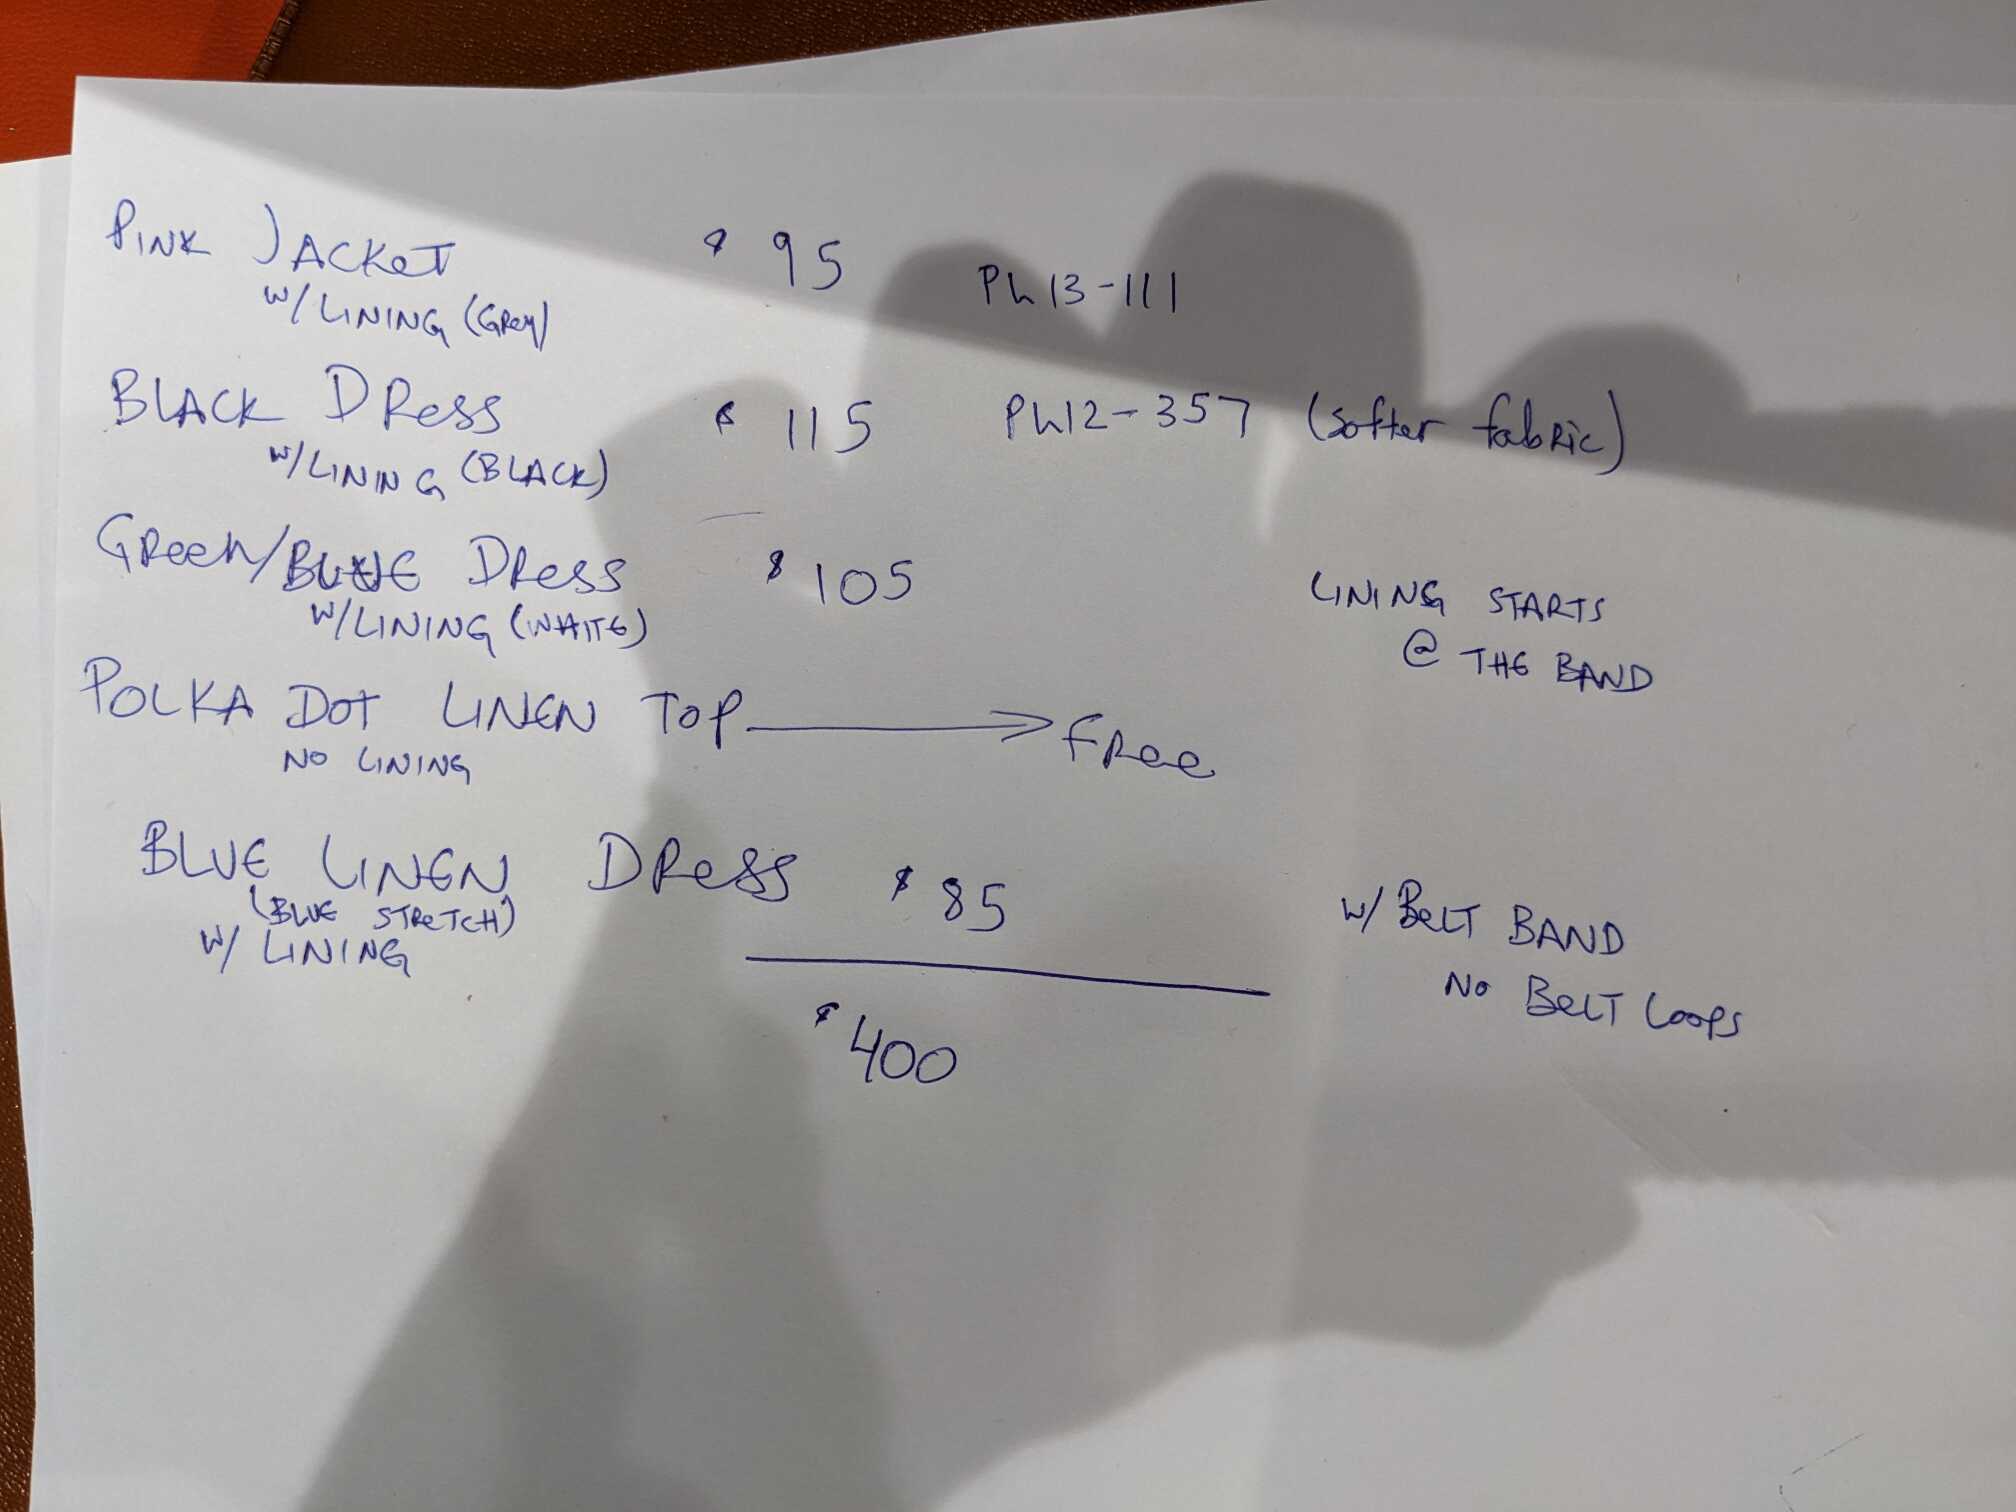 PINK JACKET $95 Ph13-111
W/ LINING (GREY)
BLACK DRESS $115 Ph12-357 (softer fabric)
W/ LINING (BLACK)
GREEN/BLUE DRESS $105 LINING STARTS
W/ LINING (WHITE) @ THE BAND
POLKA DOT LINEN TOP → FREE
NO LINING
BLUE LINEN DRESS $85 W/ BELT BAND
(BLUE STRETCH)
W/ LINING NO BELT LOOPS
$400